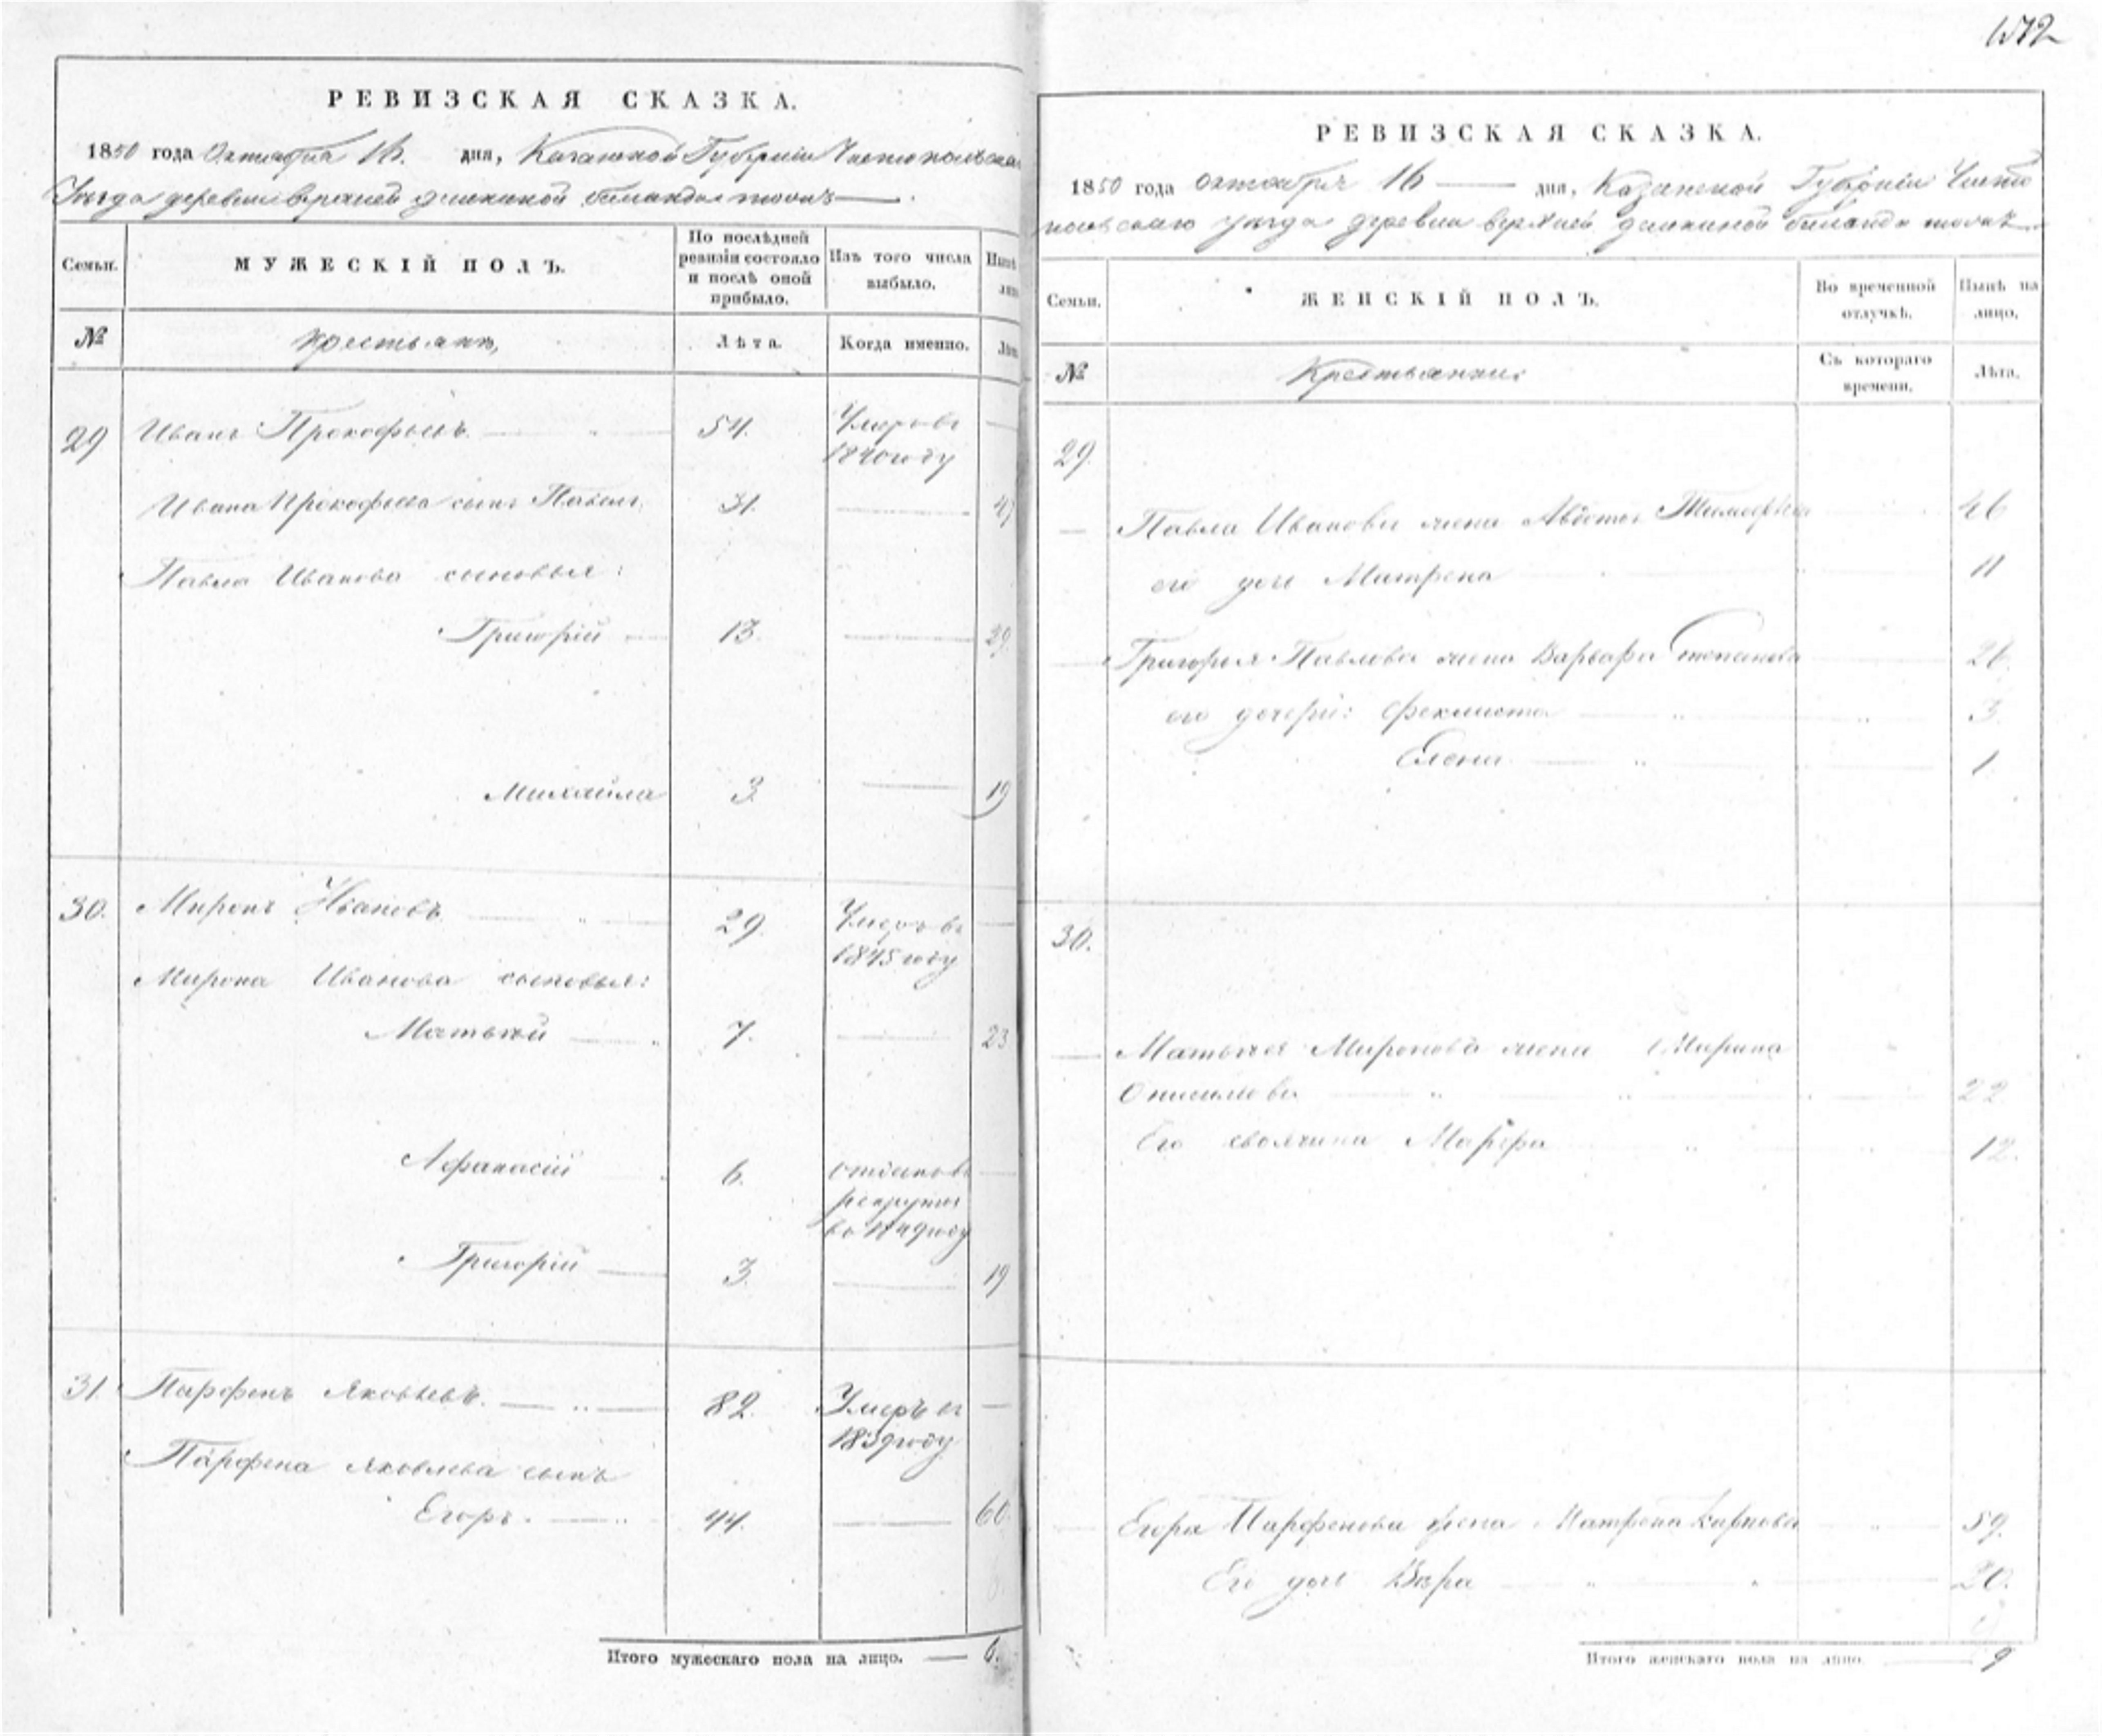 РЕВИЗСКАЯ СКАЗКА.
1850 года Октября 16. дня, Казанской Губернiи Чистопольска
Уезда деревни верхней
Семьи.
МУЖЕСКІЙ ПОЛЪ.
По послѣдней ревизіи состояло и послѣ оной прибыло.
Изъ того числа выбыло.
№
крестьяне,
Лѣта.
Когда именно.
29 Иванъ Прокофьевъ. 54. Умеръ въ
1840 году
Ивана Прокофьева сынъ Павелъ, 31. 47
Павла Иванова сыновья:
Григорій 13. 29.
Михайла 3. 19
30. Миронъ Ивановъ 29. Умеръ въ
1845 году
Мирона Иванова сыновья:
Матвей 7. 23
Афанасій 6. отданъ въ
рекруты
въ 1849 году
Григорій 3. 19
31. Парфенъ Яковлевъ. 82. Умеръ въ
1839 году
Парфена Яковлева сынъ
Егоръ. 44. 60.
Итого мужескаго пола на лицо. — 6.
572
РЕВИЗСКАЯ СКАЗКА.
1850 года октября 16 — дня, Казанской Губернiи Чисто
польскаго уезда деревни верхней
Семьи.
ЖЕНСКІЙ ПОЛЪ.
Во временной отлучкѣ.
Нынѣ на лицо.
№
Крестьянки:
Съ котораго времени.
Лѣта.
29.
Павла Иванова жена Авдотья Тимофеева 46
его дочь Матрена 11
Григорья Павлова жена Варвара Степанова 26.
его дочери: Феклиста 3.
Елена 1.
30.
Матвея Миронова жена Марина
Онисимова 22
Его своячина Марфа 12.
Егора Парфенова жена Матрена Карпова 59.
Его дочь Вера 20.
Итого женскаго пола на лицо. 9